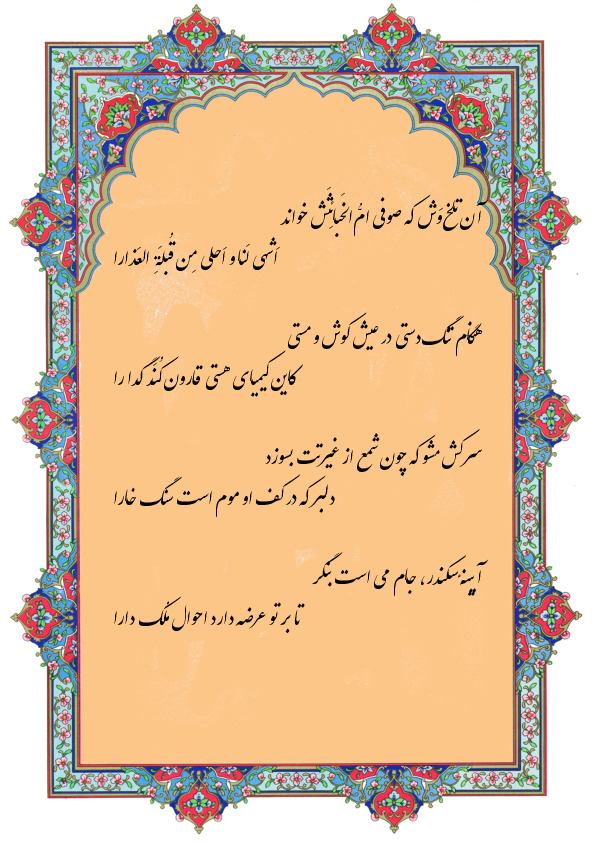 آن تلخ‌وَش که صوفی امُّ الخَبائِثَش خواند
اَشهی لَنا و اَحلی مِن قُبلَةِ العَذارا
هنگام تنگ‌دستی در عیش کوش و مستی
کاین کیمیای هستی قارون کُنَد گدا را
سرکش مشو که چون شمع از غیرتت بسوزد
دلبر که در کف او موم است سنگ خارا
آیینهٔ سکندر، جام می است بنگر
تا بر تو عرضه دارد احوال مُلک دارا